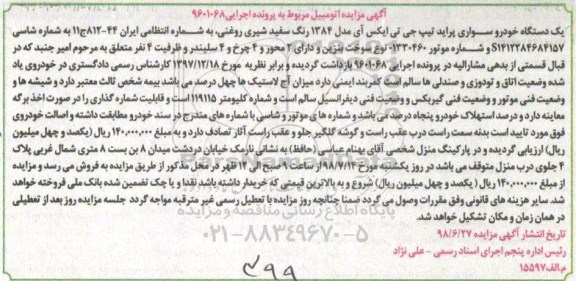 آگهی مزایده اتومبیل مربوط به پرونده اجرایی ۹۶۰۱۰۶۸
یک دستگاه خودرو سواری پراید تیپ جی تی ایکس آی مدل ۱۳۸۴ رنگ سفید شیری روغنی، به شماره انتظامی ایران ۴۴-۸۱۲ج۱۱ به شماره شاسی
S۱۴۱۲۲۸۴۶۸۴۱۵۷ و شماره موتور ۰۱۳۳۰۴۶۰ نوع سوخت بنزین و دارای ۲ محور و ۴ چرخ و ۴ سیلندر و ظرفیت ۴ نفر متعلق به مرحوم امیر جنید که در
قبال قسمتی از بدهی مشارالیه در پرونده اجرایی ۹۶۰۱۰۶۸ بازداشت گردیده و برابر نظریه مورخ ۱۳۹۷/۱۲/۱۸ کارشناس رسمی دادگستری در خودروی یاد
شده وضعیت اتاق و تودوزی و صندلی ها سالم است کمربند ایمنی دارد میزان آج لاستیک ها چهل درصد می باشد بیمه شخص ثالث معتبر دارد و شیشه ها و
وضعیت فنی موتور و وضعیت فنی گیربکس و وضعیت فنی دیفرانسیل سالم است و شماره کلیومتر ۱۱۹۱۱۵ است و قابلیت شماره گذاری را در صورت اخذ برگه
معاینه دارد و درصد استهلاک خودرو پنجاه درصد می باشد و شماره های موتور و شاسی با شماره های مندرج در سند خودرو مطابقت داشته و اصالت خودروی
فوق مورد تایید است بدنه سمت راست درب عقب راست و گوشه گلگیر جلو و عقب راست آثار تصادف دارد و به مبلغ ۱۴۰,۰۰۰,۰۰۰ ریال (یکصد و چهل میلیون
ریال) ارزیابی گردیده و در پارکینگ منزل شخصی آقای بهنام عباسی (حافظ) به نشانی نارمک خیابان دردشت میدان ۸ بن بست ۸ متری شمال غربی پلاک
۴ جلوی درب منزل متوقف می باشد در روز یکشنبه مورخ ۹۸/۷/۱۴ از ساعت ۹ صبح الی ۱۲ ظهر در محل مذکور از طریق مزایده به فروش می رسد و مزایده
از مبلغ ۱۴۰,۰۰۰,۰۰۰ ریال (یکصد و چهل میلیون ریال) شروع و به بالاترین قیمتی که خریدار داشته باشد نقدا و یا چک تضمین شده بانک ملی فروخته خواهد
شد. سایر هزینه های قانونی وفق مقررات وصول می گردد ضمنا چنانچه روز مزایده با تعطیل رسمی غیر مترقبه مواجه گردد جلسه مزایده روز بعد از تعطیلی
در همان زمان و مکان تشکیل خواهد شد.
تاریخ انتشار آگهی مزایده ۹۸/۶/۲۷
رئیس اداره پنجم اجرای اسناد رسمی - علی نژاد
م الف۱۵۵۹۷
پایگاه اطلاع رسانی مناقصه و مزایده
۰۲۱-۸۸۳۴۹۶۷۰-۵
۳۹۹